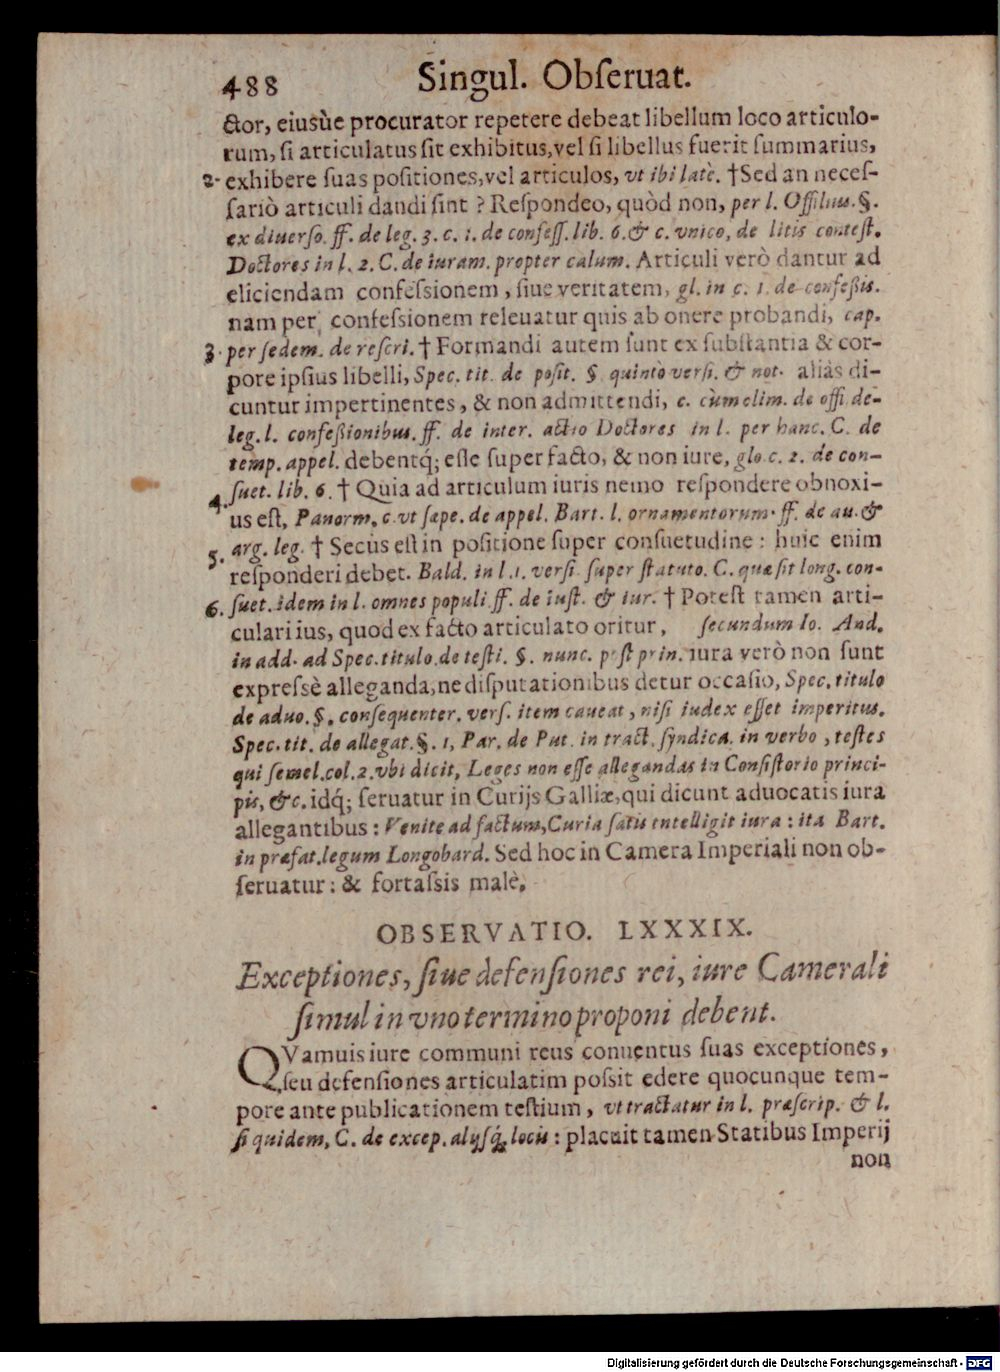 488 Singul. Obſeruat.
ctor, eiusùe procurator repetere debeat libellum loco articulo-
rum, ſi articulatus ſit exhibitus, vel ſi libellus fuerit ſummarius,
2. exhibere ſuas poſitiones, vel articulos, vt ibi latè. † Sed an neceſ-
ſariò articuli dandi ſint ? Reſpondeo, quòd non, per l. Offilius. §.
ex diuerſo. ff. de leg. 3. c. 1. de confeſſ. lib. 6. & c. vnico, de litis conteſt.
Doctores in l. 2. C. de iuram. propter calum. Articuli verò dantur ad
eliciendam confeſsionem, ſiue veritatem, gl. in c. 1. de confeßis.
nam per confeſsionem releuatur quis ab onere probandi, cap.
3. per ſedem. de reſcri. † Formandi autem ſunt ex ſubſtantia & cor-
pore ipſius libelli, Spec. tit. de poſit. §. quinto verſi. & not. aliàs di-
cuntur impertinentes, & non admittendi, c. cùm elim. de offi. de-
leg. l. confeßionibus. ff. de inter. actio Doctores in l. per hanc. C. de
temp. appel. debentq́; eſſe ſuper facto, & non iure, glo. c. 2. de con-
ſuet. lib. 6. † Quia ad articulum iuris nemo reſpondere obnoxi-
4. us eſt, Panorm. c. vt ſæpe. de appel. Bart. l. ornamentorum. ff. de au. &
arg. leg. † Secus eſt in poſitione ſuper conſuetudine : huic enim
5. reſponderi debet. Bald. in l. 1. verſi. ſuper ſtatuto. C. quæ ſit long. con-
6. ſuet. idem in l. omnes populi. ff. de iuſt. & iur. † Poteſt tamen arti-
culari ius, quod ex facto articulato oritur, ſecundum Io. And.
in add. ad Spec. titulo. de teſti. §. nunc. poſt prin. iura verò non ſunt
expreſsè alleganda, ne diſputationibus detur occaſio, Spec. titulo
de aduo. §. conſequenter. verſ. item caueat, niſi iudex eſſet imperitus.
Spec. tit. de allegat. §. 1, Par. de Put. in tract. ſyndica. in verbo, teſtes
qui ſemel. col. 2. vbi dicit, Leges non eſſe allegandas in Conſiſtorio princi-
pis, &c. idq́; ſeruatur in Curijs Galliæ, qui dicunt aduocatis iura
allegantibus : Venite ad factum, Curia ſatis intelligit iura : ita Bart.
in præfat. legum Longobard. Sed hoc in Camera Imperiali non ob-
ſeruatur : & fortaſsis malè.
OBSERVATIO. LXXXIX.
Exceptiones, ſiue defenſiones rei, iure Camerali
ſimul in vno termino proponi debent.
QVamuis iure communi reus conuentus ſuas exceptiones,
ſeu defenſiones articulatim poſsit edere quocunque tem-
pore ante publicationem teſtium, vt tractatur in l. præſcrip. & l.
ſi quidem, C. de excep. alijſq́; locis : placuit tamen Statibus Imperij
non
Digitalisierung gefördert durch die Deutsche Forschungsgemeinschaft - DFG